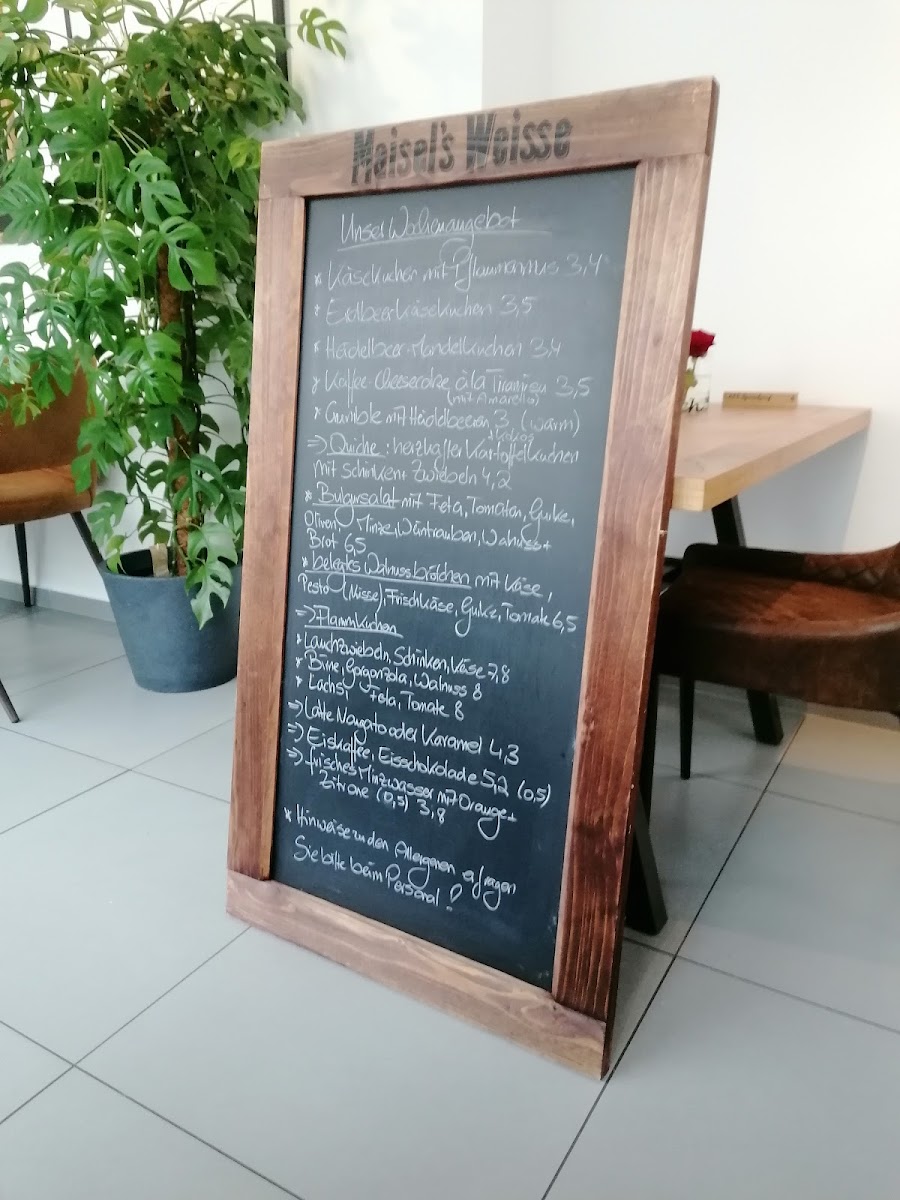 Maisel's Weisse
Unser Wochenangebot
* Käsekuchen mit Pflaumenmus 3,4
* Erdbeerkäsekuchen 3,5
* Heidelbeer-Mandelkuchen 3,4
* Kaffee-Cheesecake à la Tiramisu 3,5
(mit Amaretto)
* Crumble mit Heidelbeeren 3, (warm)
=> Quiche: herzhafter Kartoffelkuchen
mit Schinken+ Zwiebeln 4,2
* Bulgursalat mit Feta, Tomaten, Gurke,
Oliven, Minze, Weintrauben, Walnuss+
Brot 6,5
* belegtes Walnussbrötchen mit Käse,
Pesto (Nüsse), Frischkäse, Gurke, Tomate 6,5
=> Flammkuchen
* Lauchzwiebeln, Schinken, Käse 7,8
* Birne, Gorgonzola, Walnuss 8
* Lachs, Feta, Tomate 8
=> Latte Nougat oder Karamel 4,3
=> Eiskaffee, Eisschokolade 5,2 (0,5)
=> frisches Minzwasser mit Orange+
Zitrone (0,5) 3,8
* Hinweise zu den Allergenen erfragen
Sie bitte beim Personal!